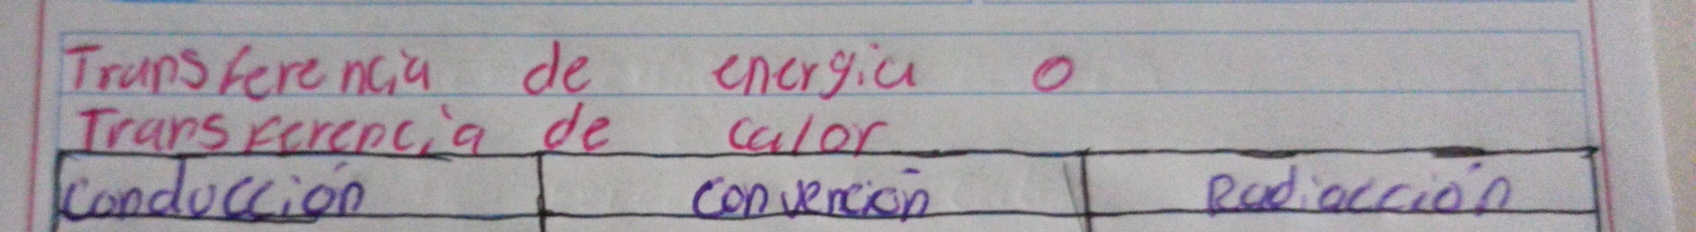 Transferencia de energia o
Transferencia de calor
Conducción convención Radiacción